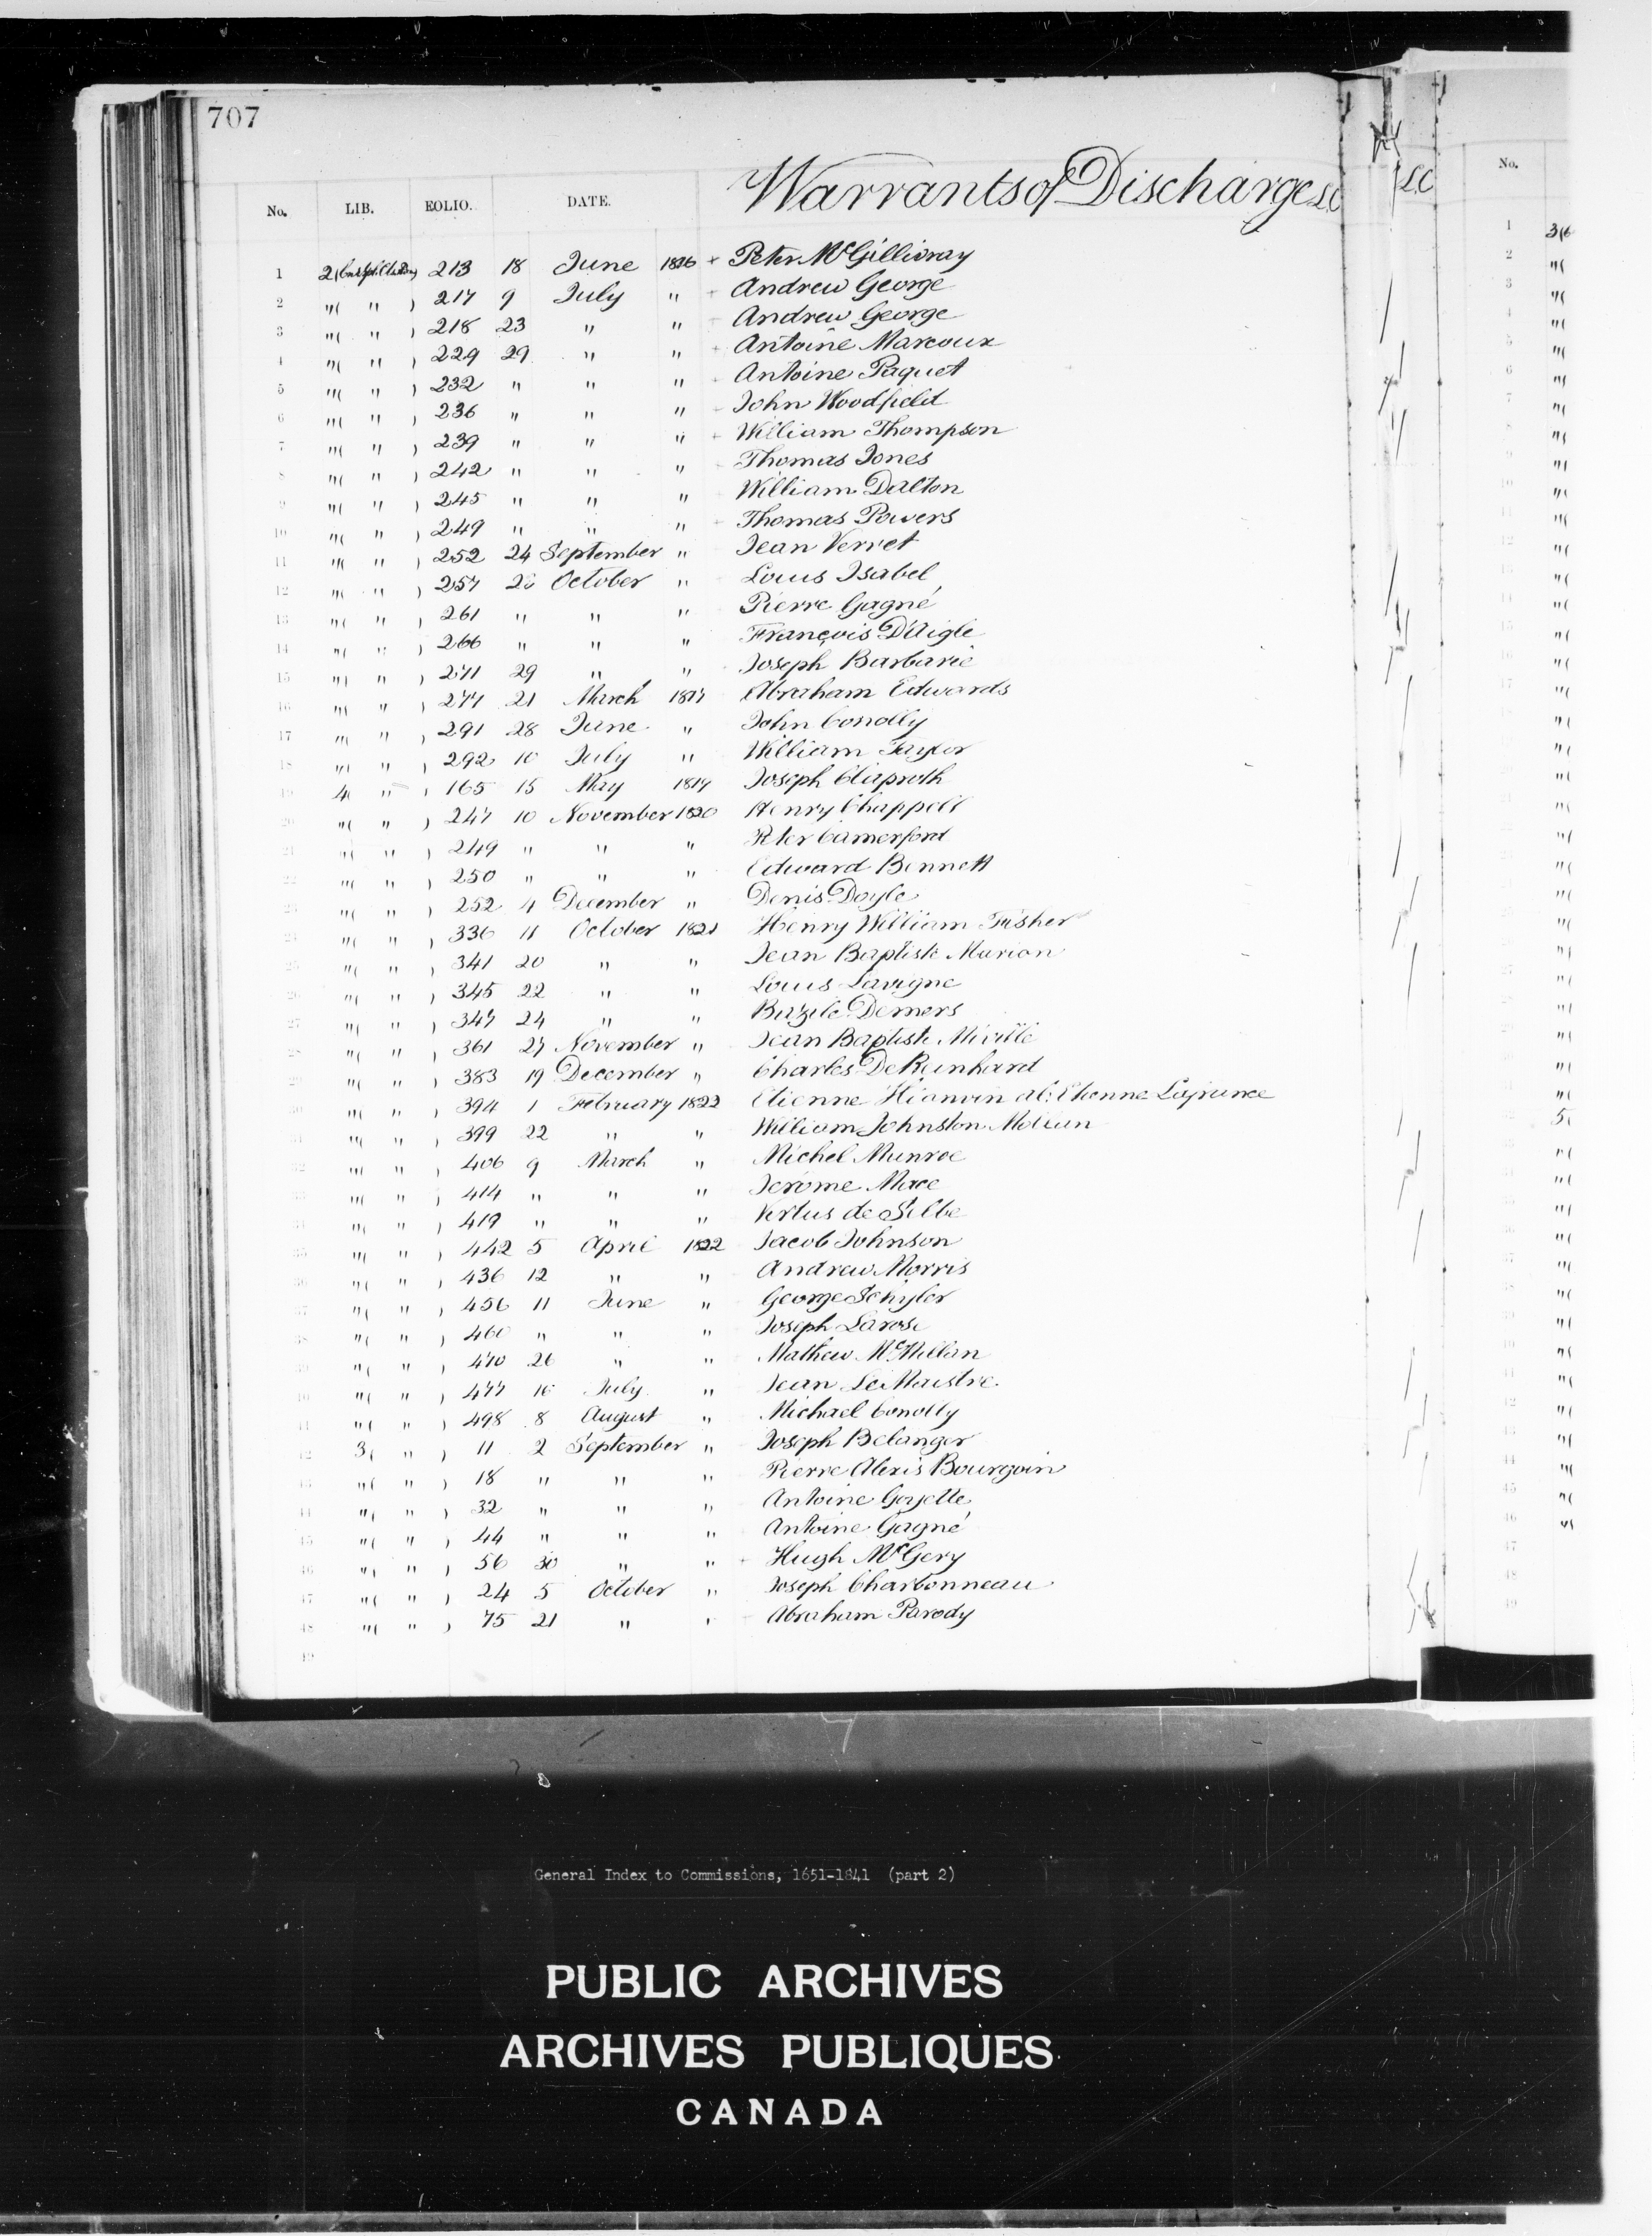 707
Warrants of Discharge L.C
No. LIB. FOLIO. DATE.
1 2( ) 213 18 June 1816 + Peter McGillivray
2 "( " ) 217 9 July " + Andrew George
3 "( " ) 218 23 " " + Andrew George
4 "( " ) 229 29 " " + Antoine Marcoux
5 "( " ) 232 " " " + Antoine Paquet
6 "( " ) 236 " " " + John Woodfield
7 "( " ) 239 " " " + William Thompson
8 "( " ) 242 " " " Thomas Jones
9 "( " ) 245 " " " William Dalton
10 "( " ) 249 " " " Thomas Powers
11 "( " ) 252 24 September " Jean Verret
12 "( " ) 257 October " Louis Isabel
13 "( " ) 261 " " " Pierre Gagné
14 "( " ) 266 " " " François D'Aigle
15 "( " ) 271 29 " " Joseph Barbarie
16 "( " ) 277 21 March 1817 Abraham Edwards
17 "( " ) 291 28 June " John Conolly
18 "( " ) 292 10 July " William Taylor
19 4( " ) 165 15 May Joseph Claproth
20 "( " ) 247 10 November 1820 Henry Chappell
21 "( " ) 249 " " " Peter Camerford
22 "( " ) 250 " " " Edward Bennett
23 "( " ) 252 4 December " Denis Doyle
24 "( " ) 336 11 October 1821 Henry William Fisher
25 "( " ) 341 20 " " Jean Baptiste Marion
26 "( " ) 345 22 " " Louis Lavigne
27 "( " ) 347 24 " " Bazile Demers
28 "( " ) 361 27 November " Jean Baptiste Miville
29 "( " ) 383 19 December " Charles DeReinhard
30 "( " ) 394 1 February 1822 Etienne Etienne Lafrance
31 "( " ) 399 22 " " William Johnston
32 "( " ) 406 9 March " Michel Munroe
33 "( " ) 414 " " " Jerome Mace
34 "( " ) 419 " " " Vertus de Silbe
35 "( " ) 442 5 April 1822 Jacob Johnson
36 "( " ) 436 12 " " Andrew Morris
37 "( " ) 456 11 June " George Schyler
38 "( " ) 460 " " " Joseph Larose
39 "( " ) 470 26 " " Mathew McMillan
40 "( " ) 477 16 July " Jean LeMaistre
41 "( " ) 498 8 August " Michael Conolly
42 3( " ) 11 2 September " Joseph Belanger
43 "( " ) 18 " " " Pierre Alexis Bourgoin
44 "( " ) 32 " " " Antoine Goyette
45 "( " ) 44 " " " Antoine Gagné
46 "( " ) 56 30 " " + Hugh McGery
47 "( " ) 24 5 October " Joseph Charbonneau
48 "( " ) 75 21 " " Abraham Parody
49
L.C
No.
1 3(
General Index to Commissions, 1651-1841 (part 2)
PUBLIC ARCHIVES
ARCHIVES PUBLIQUES
CANADA